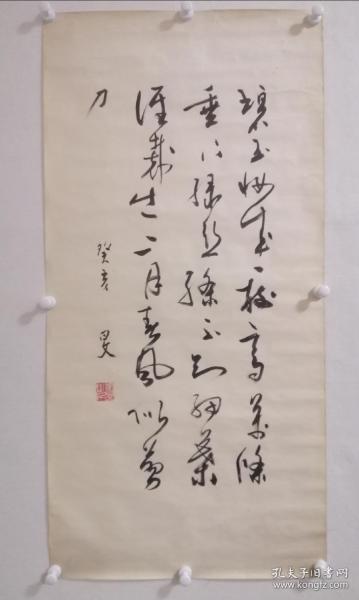 碧玉妝成一樹高萬條
垂下綠絲絛不知細葉
誰裁出二月春風似剪
刀
癸亥
孔夫子旧书网
www.kongfz.com